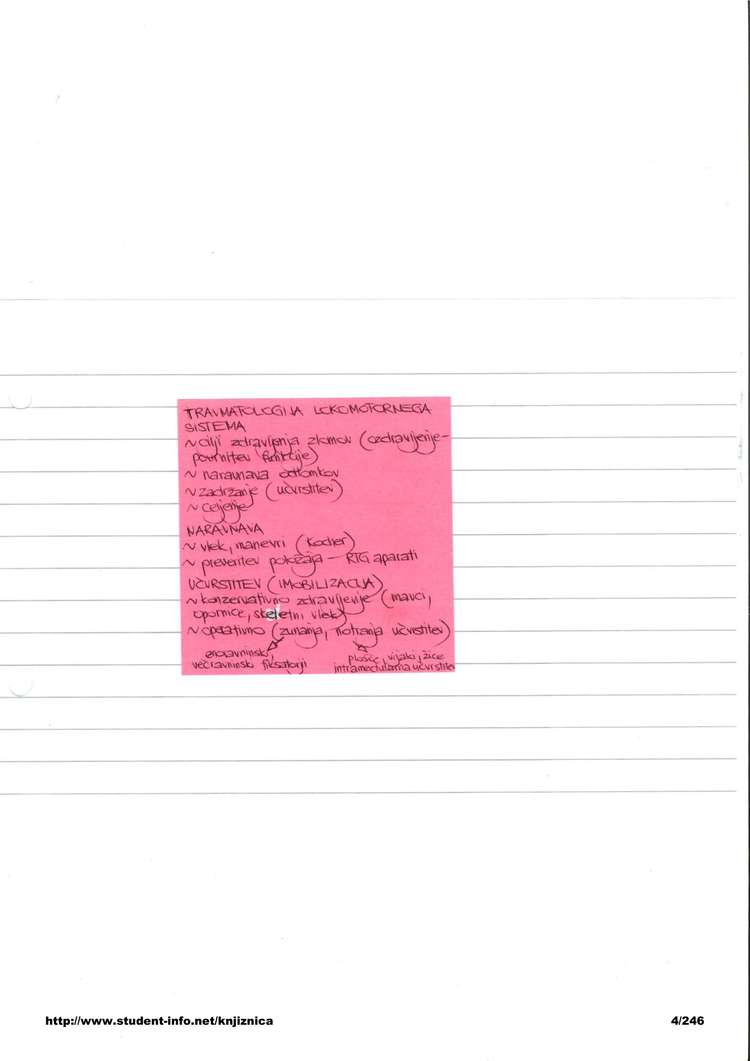 TRAVMATOLOGIJA LOKOMOTORNEGA
SISTEMA
~ cilji zdravljenja zlomov (ozdravljenje-
povrnitev funkcije)
~ naravnava odlomkov
~ zadržanje (učvrstitev)
~ celjenje
NARAVNAVA
~ vlek, manevri (Kocher)
~ preveritev položaja – RTG aparati
UČVRSTITEV (IMOBILIZACIJA)
~ konzervativno zdravljenje (mavci,
opornice, skeletni vlek)
~ operativno (zunanja, notranja učvrstitev)
enoravninski, plošče, vijaki, žice
večravninski fiksatorji intramedularna učvrstitev
http://www.student-info.net/knjiznica 4/246